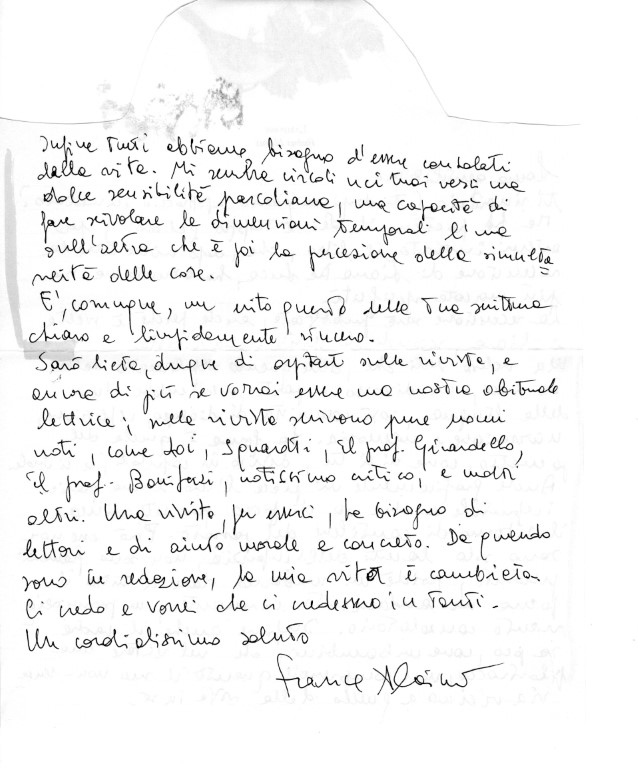 Infine tutti abbiamo bisogno d'essere consolati
dalla vita. Mi sembra vincoli nei tuoi versi una
dolce sensibilità pascoliana, una capacità di
fare scivolare le dimensioni temporali l'una
sull'altra che è poi la percezione della simulta=
neità delle cose.
E', comunque, un rito questo della tua scrittura
chiaro e limpidamente sincero.
Sarò lieta, dunque di ospitarti sulla rivista, e
ancora di più se vorrai essere una nostra abituale
lettrice; sulla rivista scrivono pure nomi
noti, come Loi, Squarotti, il prof. Girardello,
il prof. Bonifazi, notissimo critico, e molti
altri. Una rivista, per esserci, ha bisogno di
lettori e di aiuto morale e concreto. Da quando
sono in redazione, la mia vita è cambiata
Ci credo e vorrei che ci credessero in tanti.
Un cordialissimo saluto
Franca